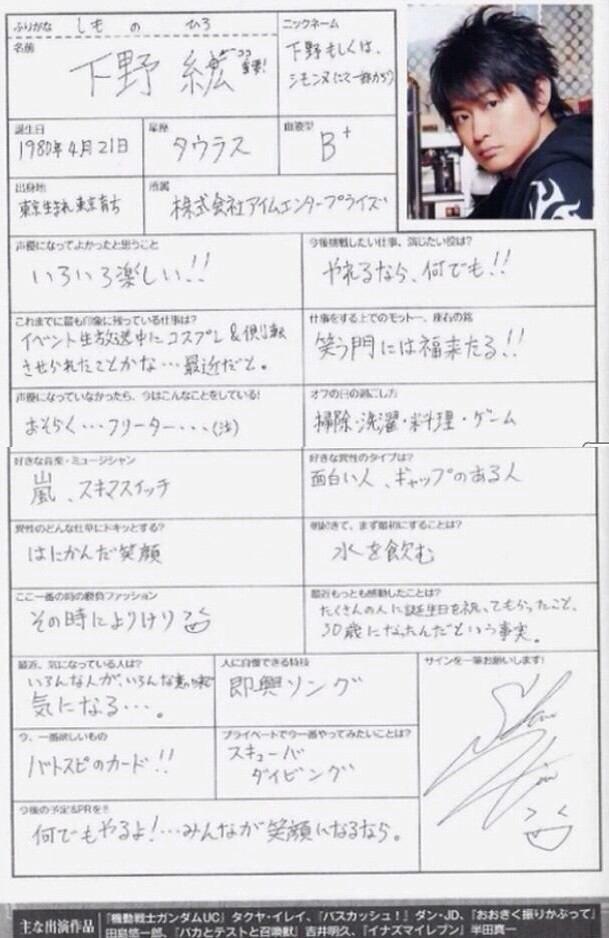 ふりがな しもの ひろ
名前
下野 紘
ココ重要!
ニックネーム
下野もしくは、
誕生日
1980年4月21日
星座
タウラス
血液型
B+
出身地
東京生まれ東京育ち
所属
株式会社アイムエンタープライズ
声優になってよかったと思うこと
いろいろ楽しい!!
今後挑戦したい仕事、演じたい役は?
やれるなら、何でも!!
これまでに最も印象に残っている仕事は?
イベント生放送中にコスプレ&側転
させられたことかな…最近だと。
仕事をする上でのモットー、座右の銘
笑う門には福来たる!!
声優になっていなかったら、今はこんなことをしている!
おそらく…フリーター…(汗)
オフの日の過ごし方
掃除・洗濯・料理・ゲーム
好きな音楽・ミュージシャン
嵐、スキマスイッチ
好きな異性のタイプは?
面白い人、ギャップのある人
異性のどんな仕草にドキッとする?
はにかんだ笑顔
朝起きて、まず最初にすることは?
水を飲む
ここ一番の時の勝負ファッション
その時によりけり
最近もっとも感動したことは?
たくさんの人に誕生日を祝ってもらったこと、
30歳になったんだという事実。
最近、気になっている人は?
いろんな人が、いろんな意味で
気になる…。
人に自慢できる特技
即興ソング
サインを一筆お願いします!
今、一番欲しいもの
バトスピのカード!!
プライベートで今一番やってみたいことは?
スキューバ
ダイビング
今後の予定&PRを!!
何でもやるよ!…みんなが笑顔になるなら。
主な出演作品
『機動戦士ガンダムUC』タクヤ・イレイ、『バスカッシュ!』ダン・JD、『おおきく振りかぶって』
田島悠一郎、『バカとテストと召喚獣』吉井明久、『イナズマイレブン』半田真一